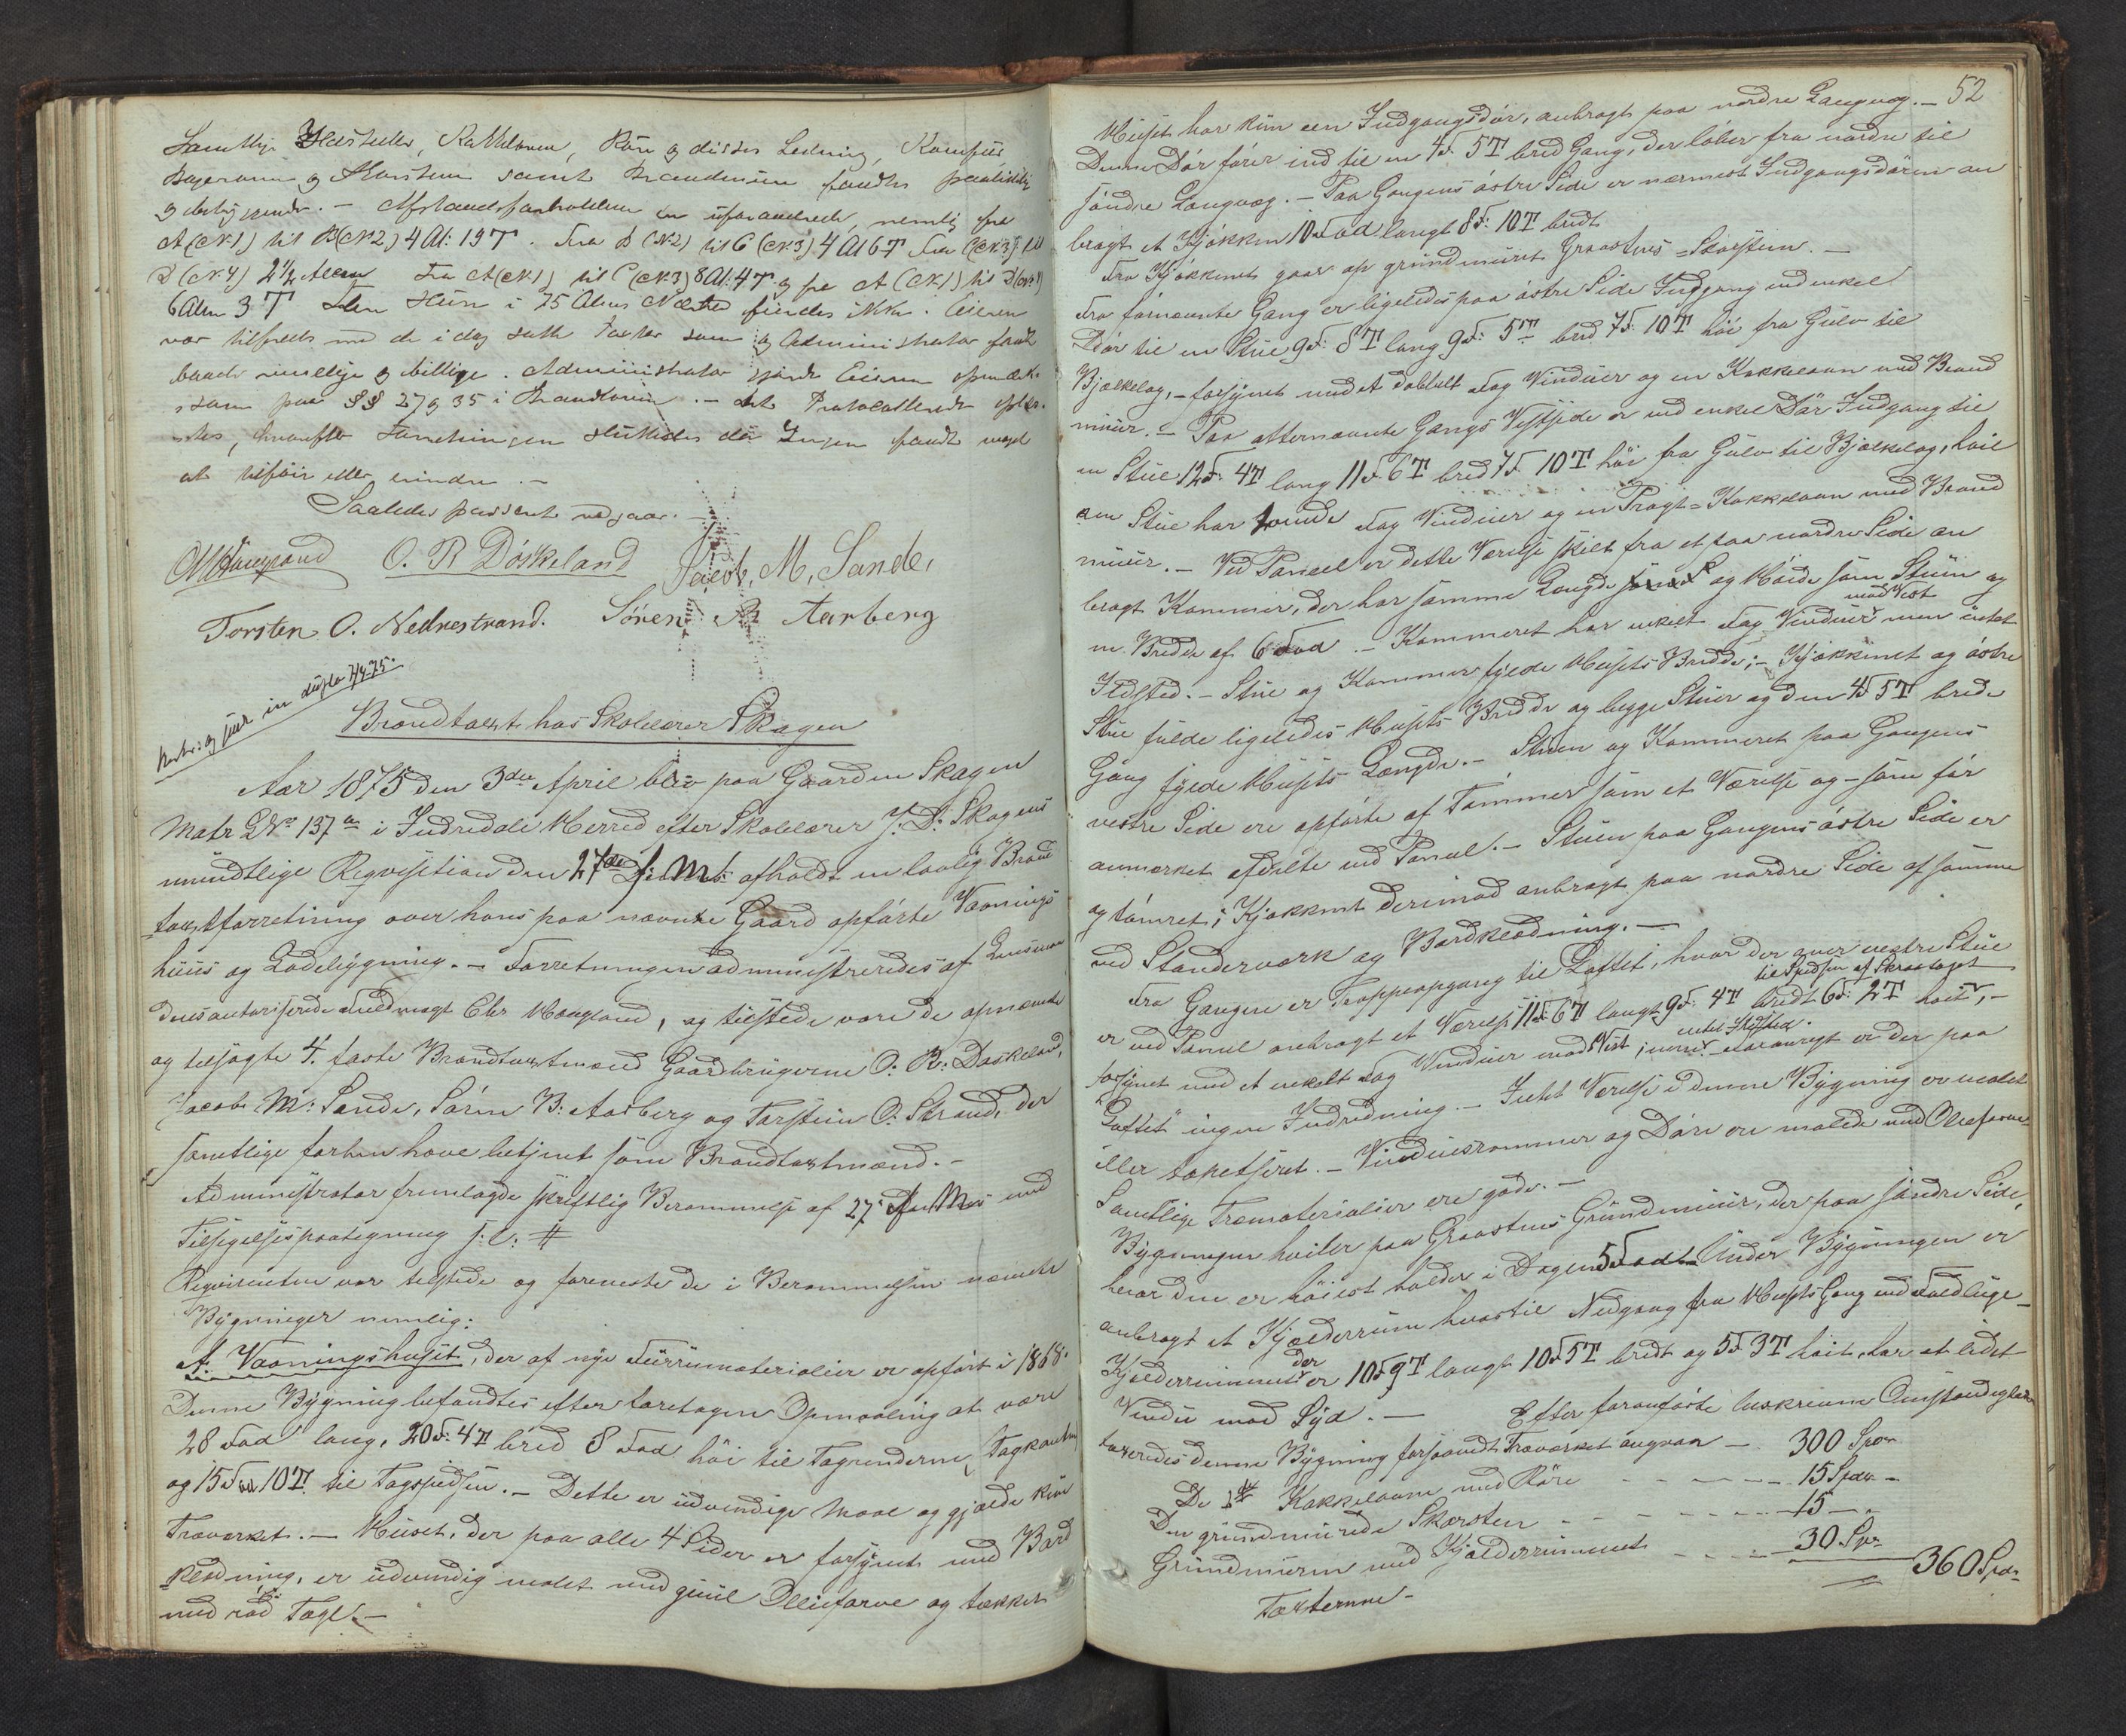 Samtlige Ildsteder, Kakkelovne, Rör og disses Ledning, Komfur
Bageroven og Skorsteen samt Brandmuren fandtes paalidelig
og betryggende. – Afstandsforholdene er uforandrede, nemlig fra
A (No 1) til B (No 2) 4 Al: 19 T. Fra B (No 2) til C (No 3) 4 Al 6 T Fra C (No 3) til
D (No 4) 2 1/2 Alen Fra A (No 1) til C (No 3) 8 Al: 4 T. og fra A (No 1) til D (No 4)
6 Alen 3 T Flere Huse i 75 Alens Nærhed findes ikke. Eieren
var tilfreds med de i dag satte Taxter som og Administrator fandt
baade rimelige og billige. Administrator gjorde Eieren opmærk-
som paa §§ 27 og 35 i Brandloven. – Det Protocollerede oplæ-
stes, hvorefter Forretningen sluttedes da Ingen fandt noget
at tilföie eller erindre. –
Saaledes passeret vidner. –
O. R Döskeland Jacob, M, Sande,
Torsten O. Nedrestrand. Sören B Aarberg
in duplo 7/4 75.
Brandtaxt hos Skolelærer Skagen
Aar 1875 den 3die April blev paa Gaarden Skagen
Matr L No 137 a i Indredale Herred efter Skolelærer J. D. Skagens
mundtlige Reqvisition den 27de f. M. afholdt en lovlig Brand-
taxtforretning over hans paa nævnte Gaard opförte Vaanings
huus og Ladebygning. – Forretningen administreredes af Lensman
dens autoriserede Fuldmægt Chr Haugland, og tilstede vare de opnævnte
og tilsagte 4. faste Brandtaxtmænd Gaardbrugerne O: R: Døskeland,
Jacob M: Sande, Sören B: Aarberg og Torstein O: Strand, der
samtlige forhen have betjent som Brandtaxtmænd. –
Administrator fremlagde skriftlig Berammelse af 27de f. M. med
Tilsigelsespaategning s. l: #
Reqvirenten var tilstede og foreviste de i Berammelsen nævnte
Bygninger nemlig:
A: Vaaningshuset, der af nye Furrumaterialier er opfört i 1868.
Denne Bygning befandtes efter foretagen Opmaaling at være
28 Fod lang, 20 F: 4 T bred 8 Fod höi til Tagrenderne, Tagkanten
og 15 Fod 10 T. til Tagspidsen. – Dette er udvendige Maal og gjælde kun
Træværket. – Huset, der paa alle 4 Sider er forsynet med Bord
klædning, er udvendig malet med guul Olliefarve og tækket
med röd Tagl. –
52
Huset har kun een Indgangsdör, anbragt paa nordre Langvæg. –
Denne Dör förer ind til en 4 F. 5 T bred Gang, der löber fra nordre til
söndre Langvæg. – Paa Gangens östre Side er nærmest Indgangsdören an
bragt et Kjökken 10 Fod langt 8 F: 10 T bredt
Fra Kjökkenet gaar op grundmuret Graasteens-Skorsteen. –
Fra förnævnte Gang er ligeledes paa östre Side Indgang ved enkel
Dör til en Stue 9 F: 8 T lang 9 F: 5 T bred 7 F: 10 T höi fra Gulv til
Bjælkelag, – forsynet med et dobbelt Fag Vinduer og en Kakkelovn med Brand
muur. – Paa atternævnte Gangs Vestside er ved enkel Dör Indgang til
en Stue 12 F: 4 T lang 11 F. 6 T bred 7 F. 10 T höi fra Gulv til Bjælkelag, hvil
ken Stue har tvende Fag Vinduer og en Pragt-Kakkelovn med Brand
muur. – Ved Paneel er dette Værelse skilt fra et paa nordre Side an
bragt Kammer, der har samme Længde og Höide som Stuen og
en Bredde af 6 Fod. – Kammeret har enkelt Fag Vinduer mod Vest men intet
Ildsted. – Stue og Kammer fylde Husets Bredde; – Kjökkenet og östre
Stue fulde ligeledes Husets Bredde og begge Stuer og den 4 F 5 T brede
Gang fylde Husets Længde. – Stuen og Kammeret paa Gangens
vestre Side ere opförte af Tömmer som et Værelse og – som för
anmærket afdelte ved Paneel. – Stuen paa Gangens östre Side er
og tömret; Kjökkenet derimod anbragt paa nordre Side af samme
ved Stænderværk og Bordklædning. –
Fra Gangen er Trappeopgang til Loftet, hvor der over vestre Stue
er ved Paneel anbragt et Værelse 11 F. 6 T langt 9 F. 4 T bredt 6 F: 2 T höit, til Spidsen af Skraataget –
forsynet med et enkelt Fag Vinduer mod Vest; men intet Ildsted. Forövrigt er der paa
Loftet ingen Indredning. – Intet Værelse i denne Bygning er malet
eller tapetseret. – Vinduesrammer og Döre ere malede med Oliefarve
Samtlige Træmaterialier ere gode. –
Bygningen hviler paa Graasteens Grundmuur, der paa söndre Side,
hvor den er höiest holder i Dagen 5 Fod. – Under Bygningen er
anbragt et Kjælderrum hvortil Nedgang fra Husets Gang ved Faldluge –
Kjælderrummet der er 10 F 9 T langt 10 F 5 T bredt og 5 F 3 T höit, har et lidet
Vindu mod Syd. – Efter foranförte beskrevne Omstændigheder
taxeredes denne Bygning forsaavidt Træværket angaar – 300 Spdr
De 2de Kakkelovne med Röre – – – – – – 15 Spdr –
Den grundmurede Skorsten – – – – – – 15 – „
Grundmuren med Kjælderrummet – – – – 30 Spr
360 Spdr
Taxterne –